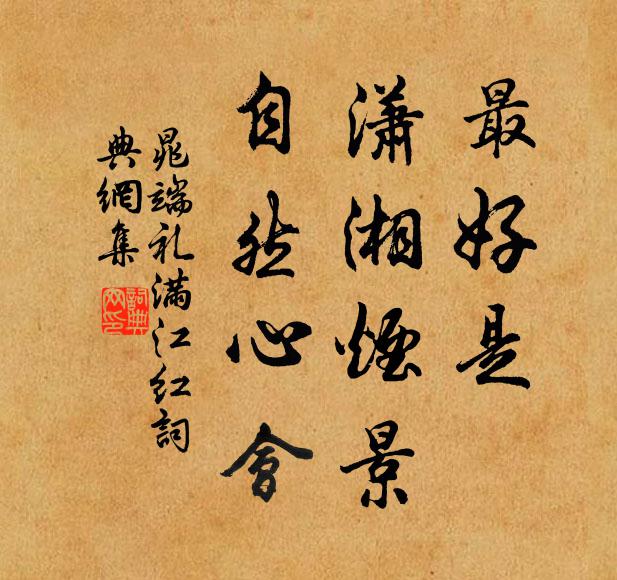 最好是
瀟湘煙景
自然心會
晁端礼滿江紅詞
典網集
詞典
网印